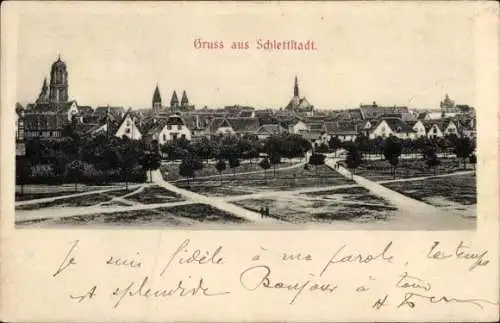 Gruss aus Schlettstadt.
je suis fidèle à ma parole, le temps
est splendide. Bonjour à tous